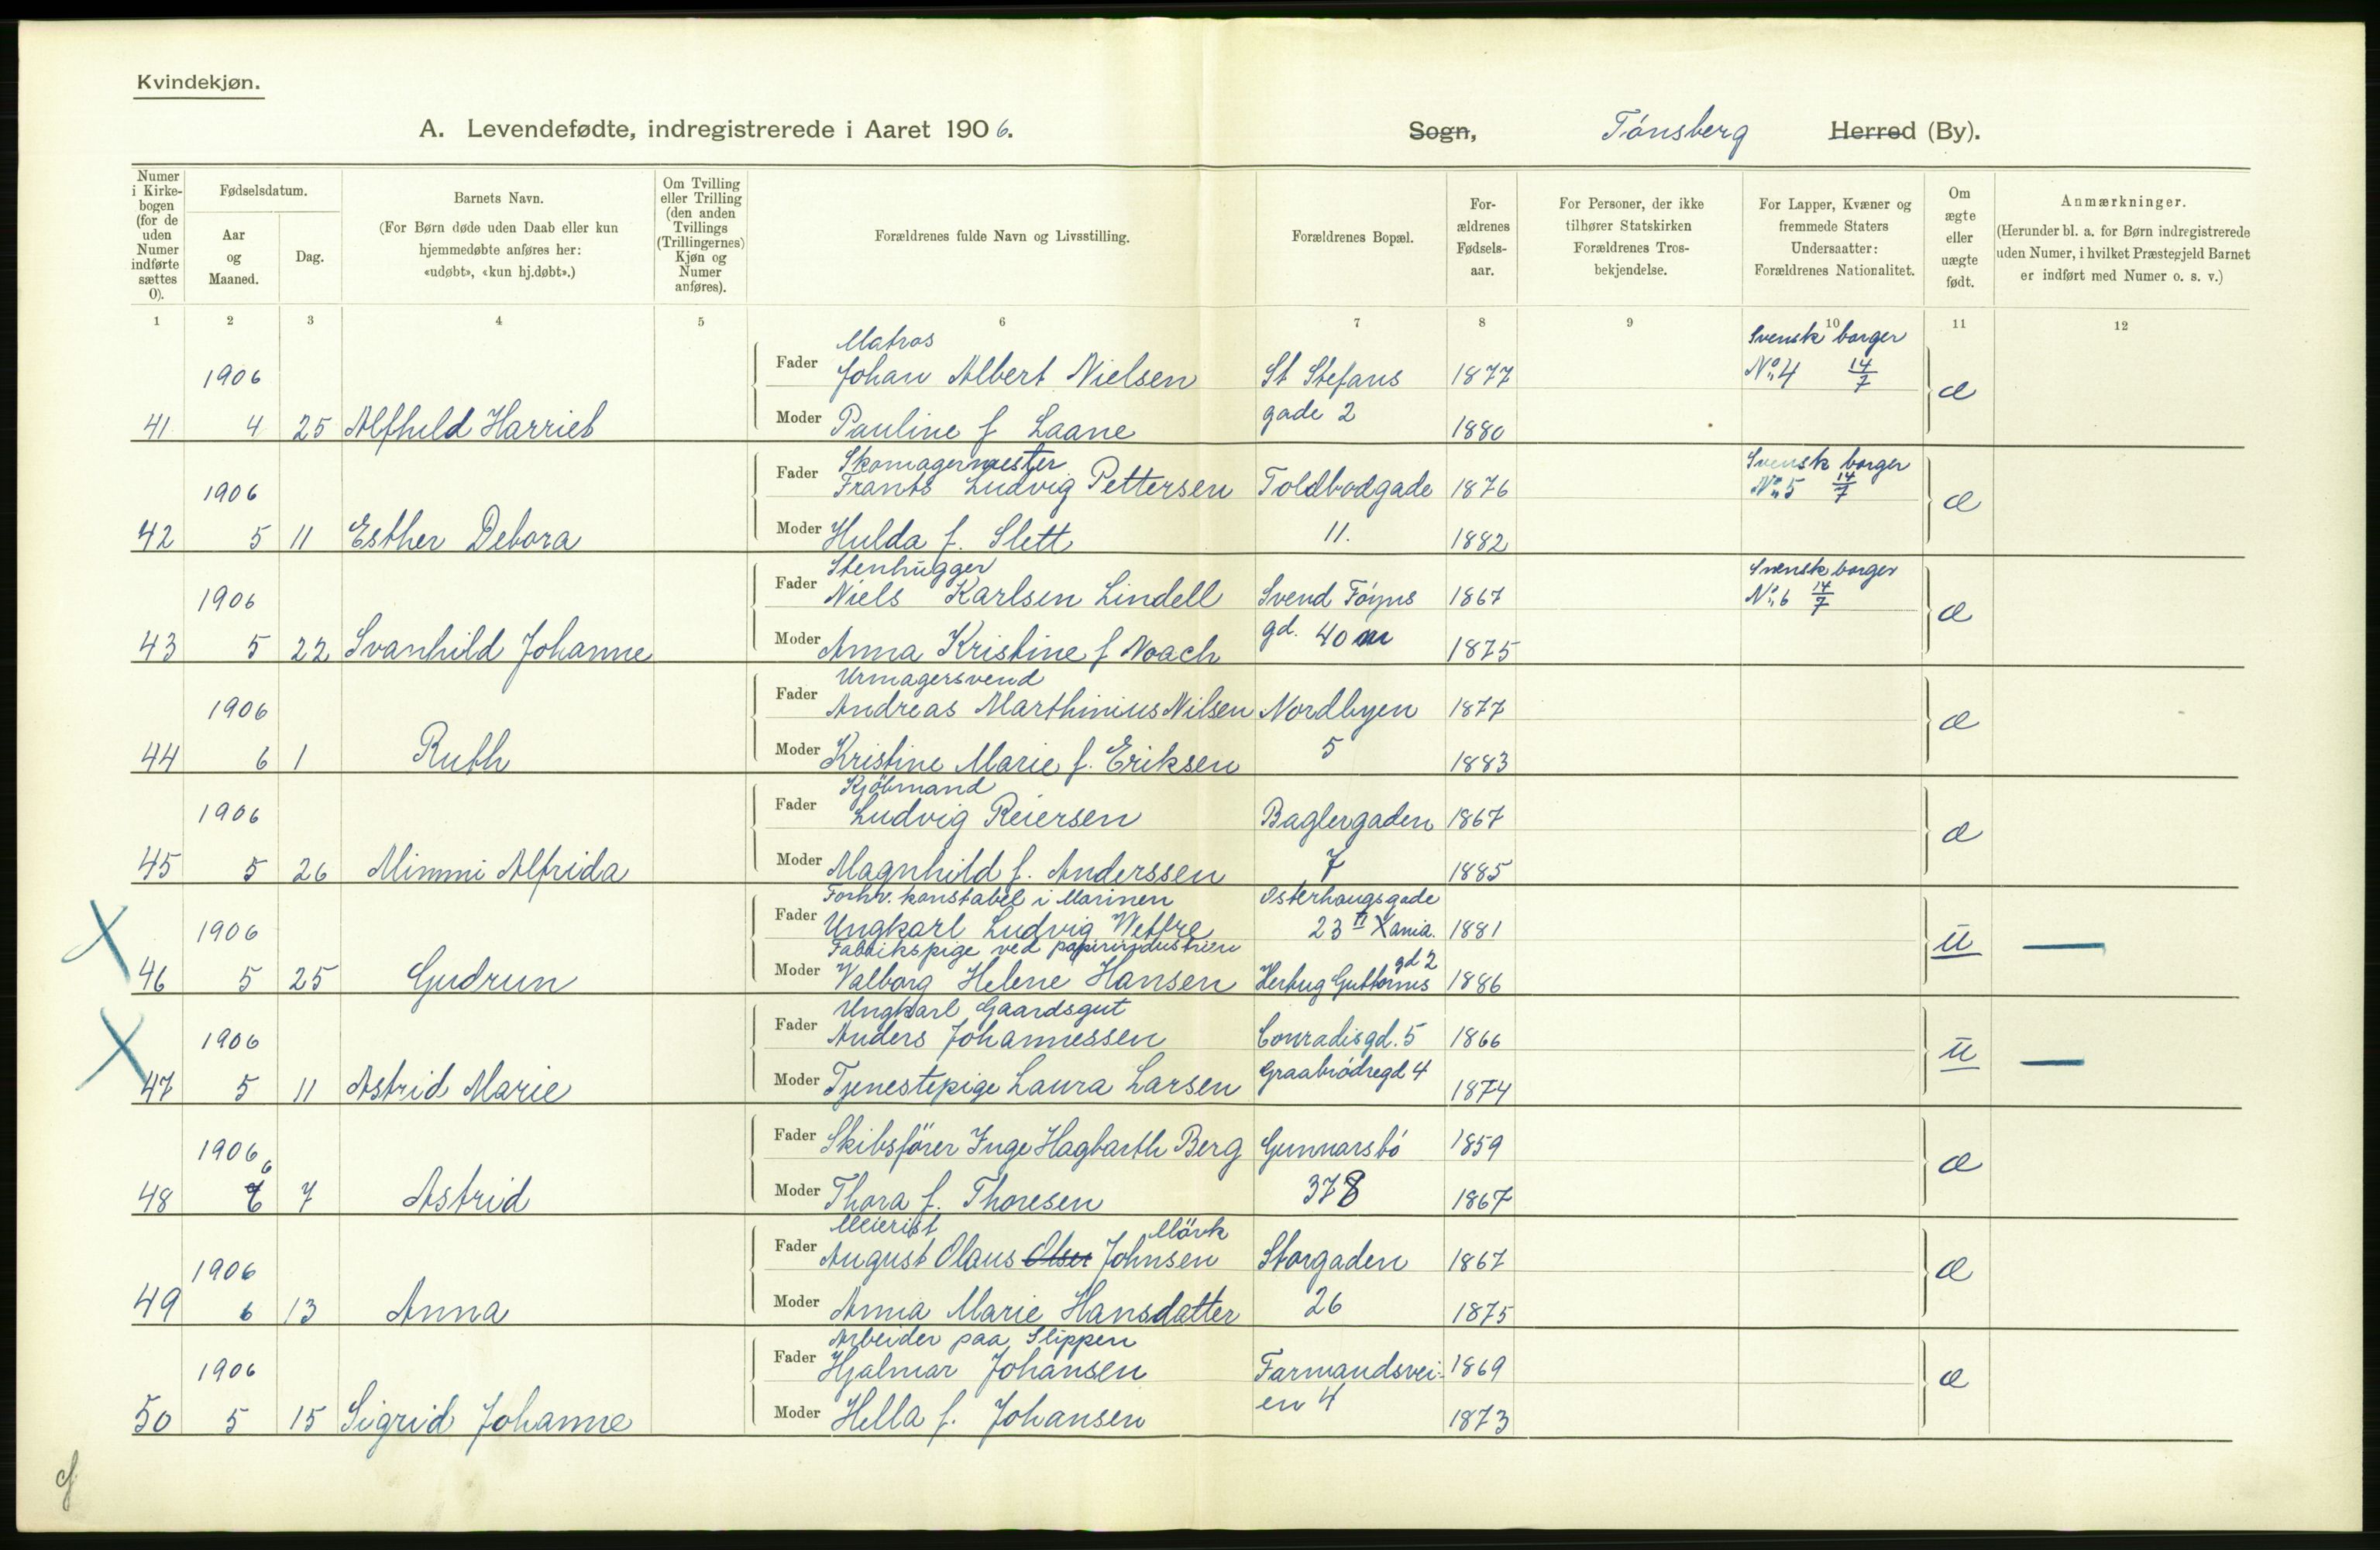 Kvindekjøn.
A. Levendefødte, indregistrerede i Aaret 1906. Sogn, Tönsberg Herred (By).
Numer i Kirkebogen (for de uden Numer indførte sættes 0).
Fødselsdatum.
Aar og Maaned.
Dag.
Barnets Navn.
(For Børn døde uden Daab eller kun hjemmedøbte anføres her: «udøbt», «kun hj.døbt».)
Om Tvilling eller Trilling (den anden Tvillings (Trillingernes) Kjøn og Numer anføres).
Forældrenes fulde Navn og Livsstilling.
Forældrenes Bopæl.
Forældrenes Fødselsaar.
For Personer, der ikke tilhører Statskirken Forældrenes Trosbekjendelse.
For Lapper, Kvæner og fremmede Staters Undersaatter: Forældrenes Nationalitet.
Om ægte eller uægte født.
Anmærkninger.
(Herunder bl. a. for Børn indregistrerede uden Numer, i hvilket Præstegjeld Barnet er indført med Numer o. s. v.)
1 2 3 4 5 6 7 8 9 10 11 12
Matros Svensk borger
1906 Fader Johan Albert Nielsen St Stefans 1877 No 4 14/7 æ
41 4 25 Alfhild Harriet Moder Pauline f Laane gade 2 1880
Skomagermester Svensk borger
1906 Fader Frants Ludvig Pettersen Toldbodgade 1876 No 5 14/7 æ
42 5 11 Esther Debora Moder Hulda f. Slett 11. 1882
Stenhugger Svensk borger
1906 Fader Niels Karlsen Lindell Svend Föyns 1867 No 6 14/7 æ
43 5 22 Svanhild Johanne Moder Anna Kristine f Noach gd. 40 1875
Urmagersvend
1906 Fader Andreas Marthinius Nilsen Nordbyen 1877 æ
44 6 1 Ruth Moder Kristine Marie f. Eriksen 5 1883
Kjöbmand
1906 Fader Ludvig Reiersen Baglergaden 1867 æ
45 5 26 Mimmi Alfrida Moder Magnhild f. Anderssen 7 1885
Forhv. konstabel i Marinen Osterhaugsgade
1906 Fader Ungkarl Ludvig Wettre 23 II Xania. 1881 u
Fabrikspige ved papirindustrien gd 2
46 5 25 Gudrun Moder Valborg Helene Hansen Hertug Guttorms 1886
Ungkarl Gaardsgut
1906 Fader Anders Johannessen Conradisgd. 5 1866 u
47 5 11 Astrid Marie Moder Tjenestepige Laura Larsen Graabrödregd 4 1874
1906 Fader Skibsförer Inge Hagbarth Berg Gunnarsbö 1859 æ
6
48 7 Astrid Moder Thora f. Thoresen 378 1867
Meierist Mörk
1906 Fader August Olaus Olsen Johnsen Storgaden 1867 æ
49 6 13 Anna Moder Anna Marie Hansdatter 26 1875
Arbeider paa Slippen
1906 Fader Hjalmar Johansen Farmandsvei- 1869 æ
50 5 15 Sigrid Johanne Moder Hella f. Johansen en 4 1873